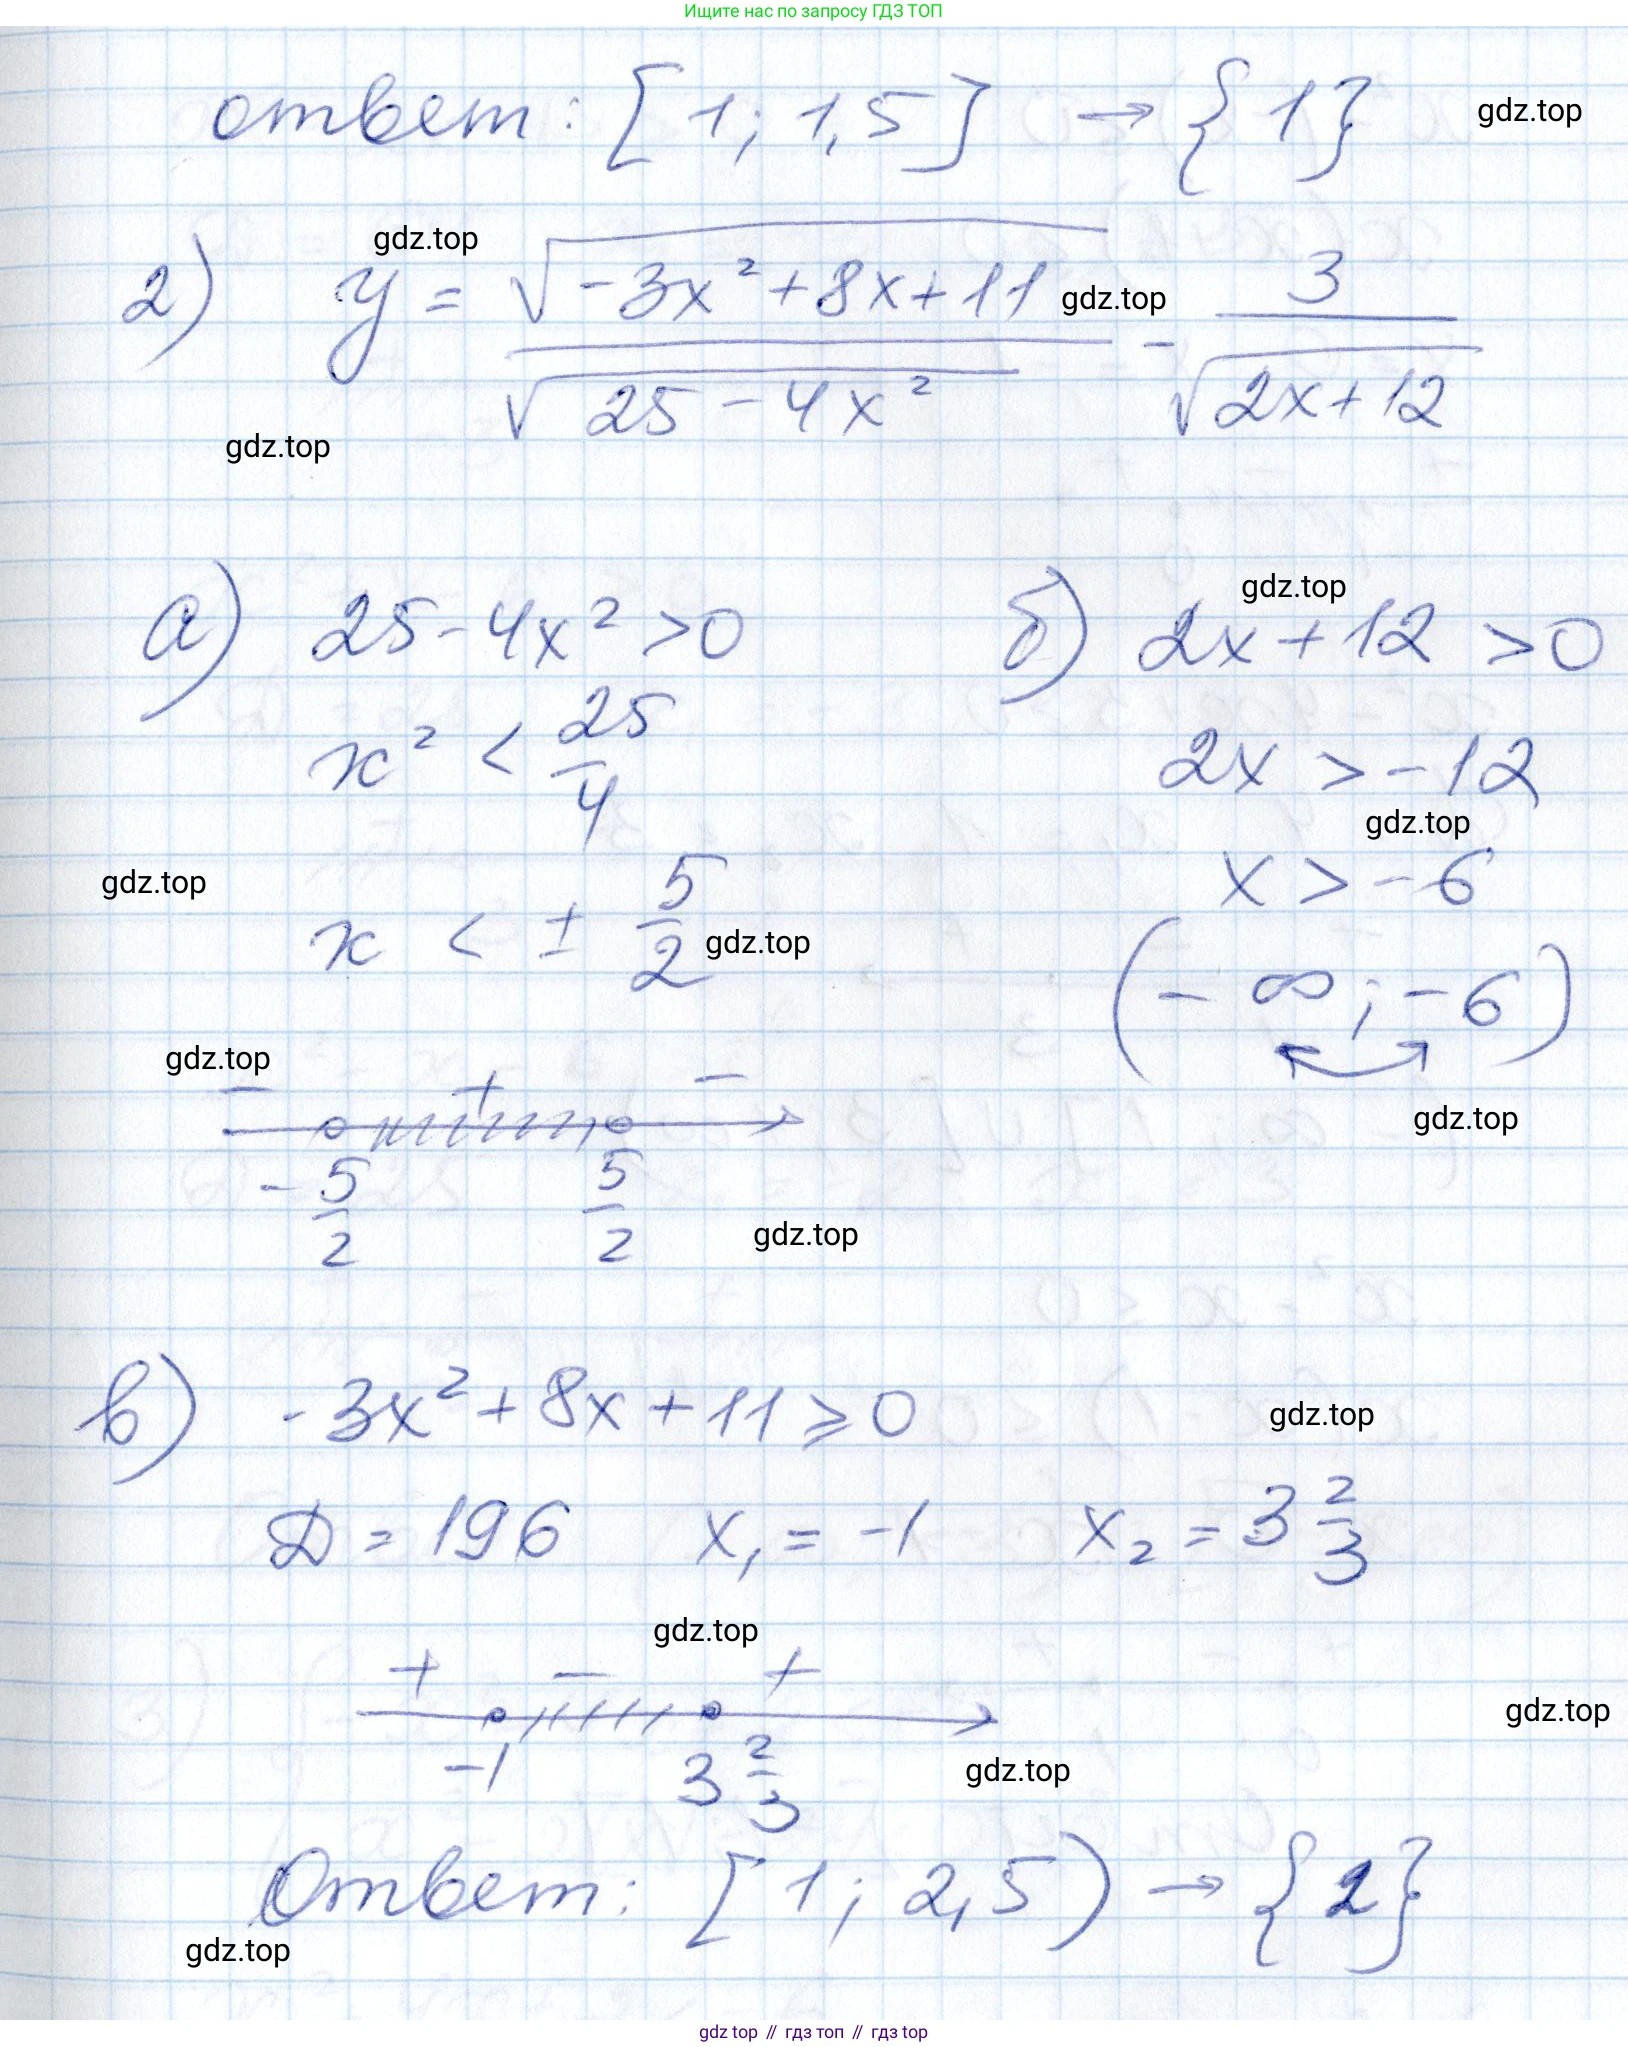 Ищите нас по запросу ГДЗ ТОП
ответ: [1; 1,5] → {1}
gdz.top
gdz.top
2) y = √(-3x² + 8x + 11) / √(25 - 4x²) - 3 / √(2x + 12)
gdz.top
gdz.top
gdz.top
а) 25 - 4x² > 0
x² < 25/4
gdz.top
x < ± 5/2
gdz.top
б) 2x + 12 > 0
2x > -12
gdz.top
x > -6
(-∞; -6)
gdz.top
gdz.top
- + -
-5/2 5/2
gdz.top
в) -3x² + 8x + 11 ⩾ 0
gdz.top
D = 196 x₁ = -1 x₂ = 3 2/3
gdz.top
+ - +
gdz.top
-1 3 2/3
gdz.top
Ответ: [1; 2,5) → {2}
gdz.top
gdz top // гдз топ // гдз top